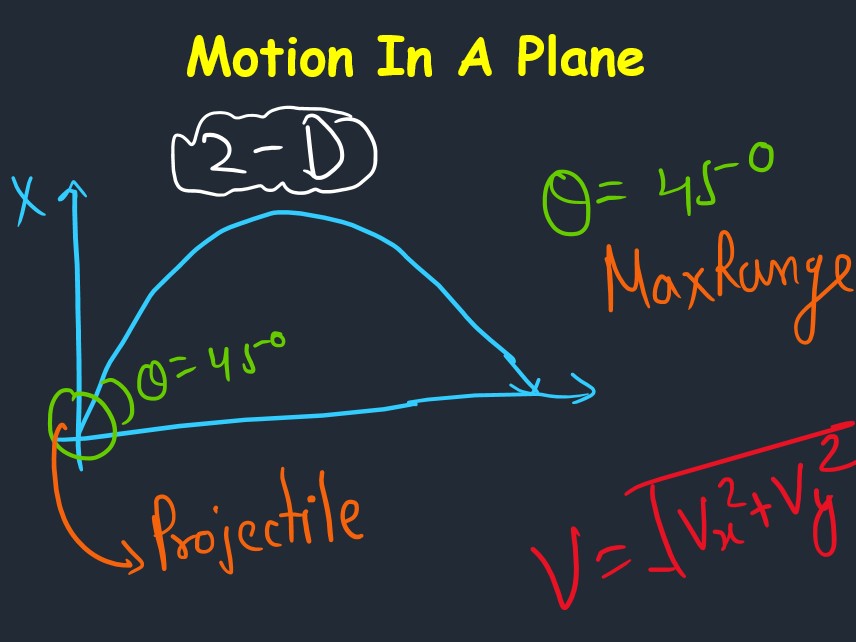 Motion In A Plane
2-D
X
θ= 45°
Max Range
θ= 45°
Projectile
V=√Vx²+Vy²